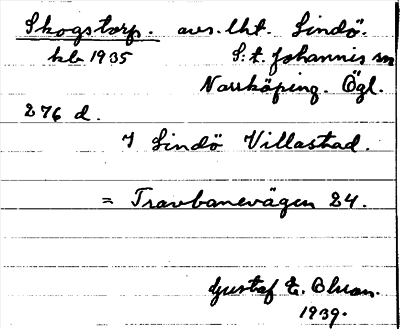 Skogstorp. avs. lht. Lindö.
hb 1935 S:t. Johannis sn
Norrköping. Ögl.
276 d.
I Lindö Villastad.
= Travbanevägen 24.
Gustaf E. Ohson.
1939.